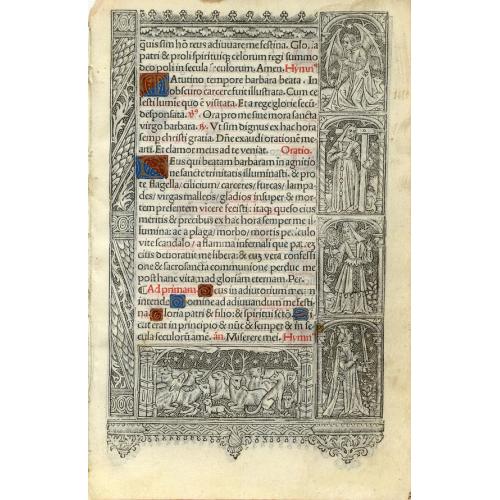 quis sim hō reus adiuuare me festina. Glo
patri & proli spirituiq; celorum regi summo
deo poli in secula seculorum. Amen. Hymnꝰ
Atutino tempore barbara beata. In
obscuro carcere fuit illustrata. Cum ce
lesti lumie quo ē visitata. Et a rege glorie secū
desponsata. Ora pro me sine mora sancta
virgo barbara. Vt sim dignus ex hac hora
semp christi gratia. Dñe exaudi orationē me
am. Et clamor meus ad te veniat. Oratio.
Eus qui beatam barbaram in agnitio
ne sancte trinitatis illuminasti. & pro
te flagella/ cilicium/ carceres/ furcas/ lampa
des/ virgas malleos/ gladios insuper & mor
tem presentem vicere fecisti: itaq; queso eius
meritis & precibus ex hac hora semper me il
lumina: ac a plaga/ morbo/ mortis periculo
vite scandalo/ a flamma infernali que
cius deuorauit me libera: & cuz vera confessi
one & sacrosancta communione perduc me
post hanc vitā ad gloriam eternam. Per.
Ad primam. Deus in adiutorium
intende Domine ad adiuuandum me festi
na. Gloria patri & filio: & spiritui sctō. Si
cut erat in principio & nūc & semper & in se
cula seculorū amē. añ. Miserere mei. Hymnꝰ